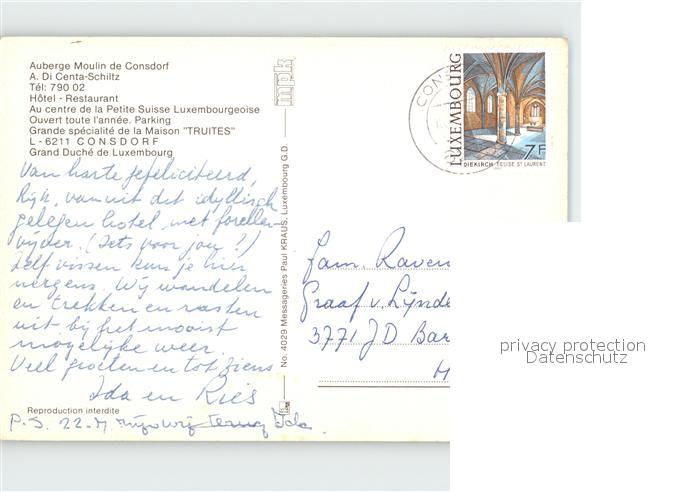 Auberge Moulin de Consdorf
A. Di Centa-Schiltz
Tél: 790 02
Hôtel - Restaurant
Au centre de la Petite Suisse Luxembourgeoise
Ouvert toute l'année. Parking
Grande spécialité de la Maison "TRUITES"
L - 6211 CONSDORF
Grand Duché de Luxembourg
Van harte gefeliciteerd,
Rijk, vanuit dit idyllisch
gelegen hotel met forellen-
vijver. (Iets voor jou?!)
Zelf vissen kun je hier
nergens. Wij wandelen
en trekken en rusten
uit bij het mooist
mogelijke weer.
Veel groeten en tot ziens
Ida en Ries
Reproduction interdite
P.S. 22-4 zijn wij terug Ida.
mpk
No. 4029 Messageries Paul KRAUS, Luxembourg G.D.
CONS
LUXEMBOURG
7F
DIEKIRCH EGLISE ST LAURENT
Fam. Raven
Graaf v. Lynde
3771 JD Bar
privacy protection
Datenschutz